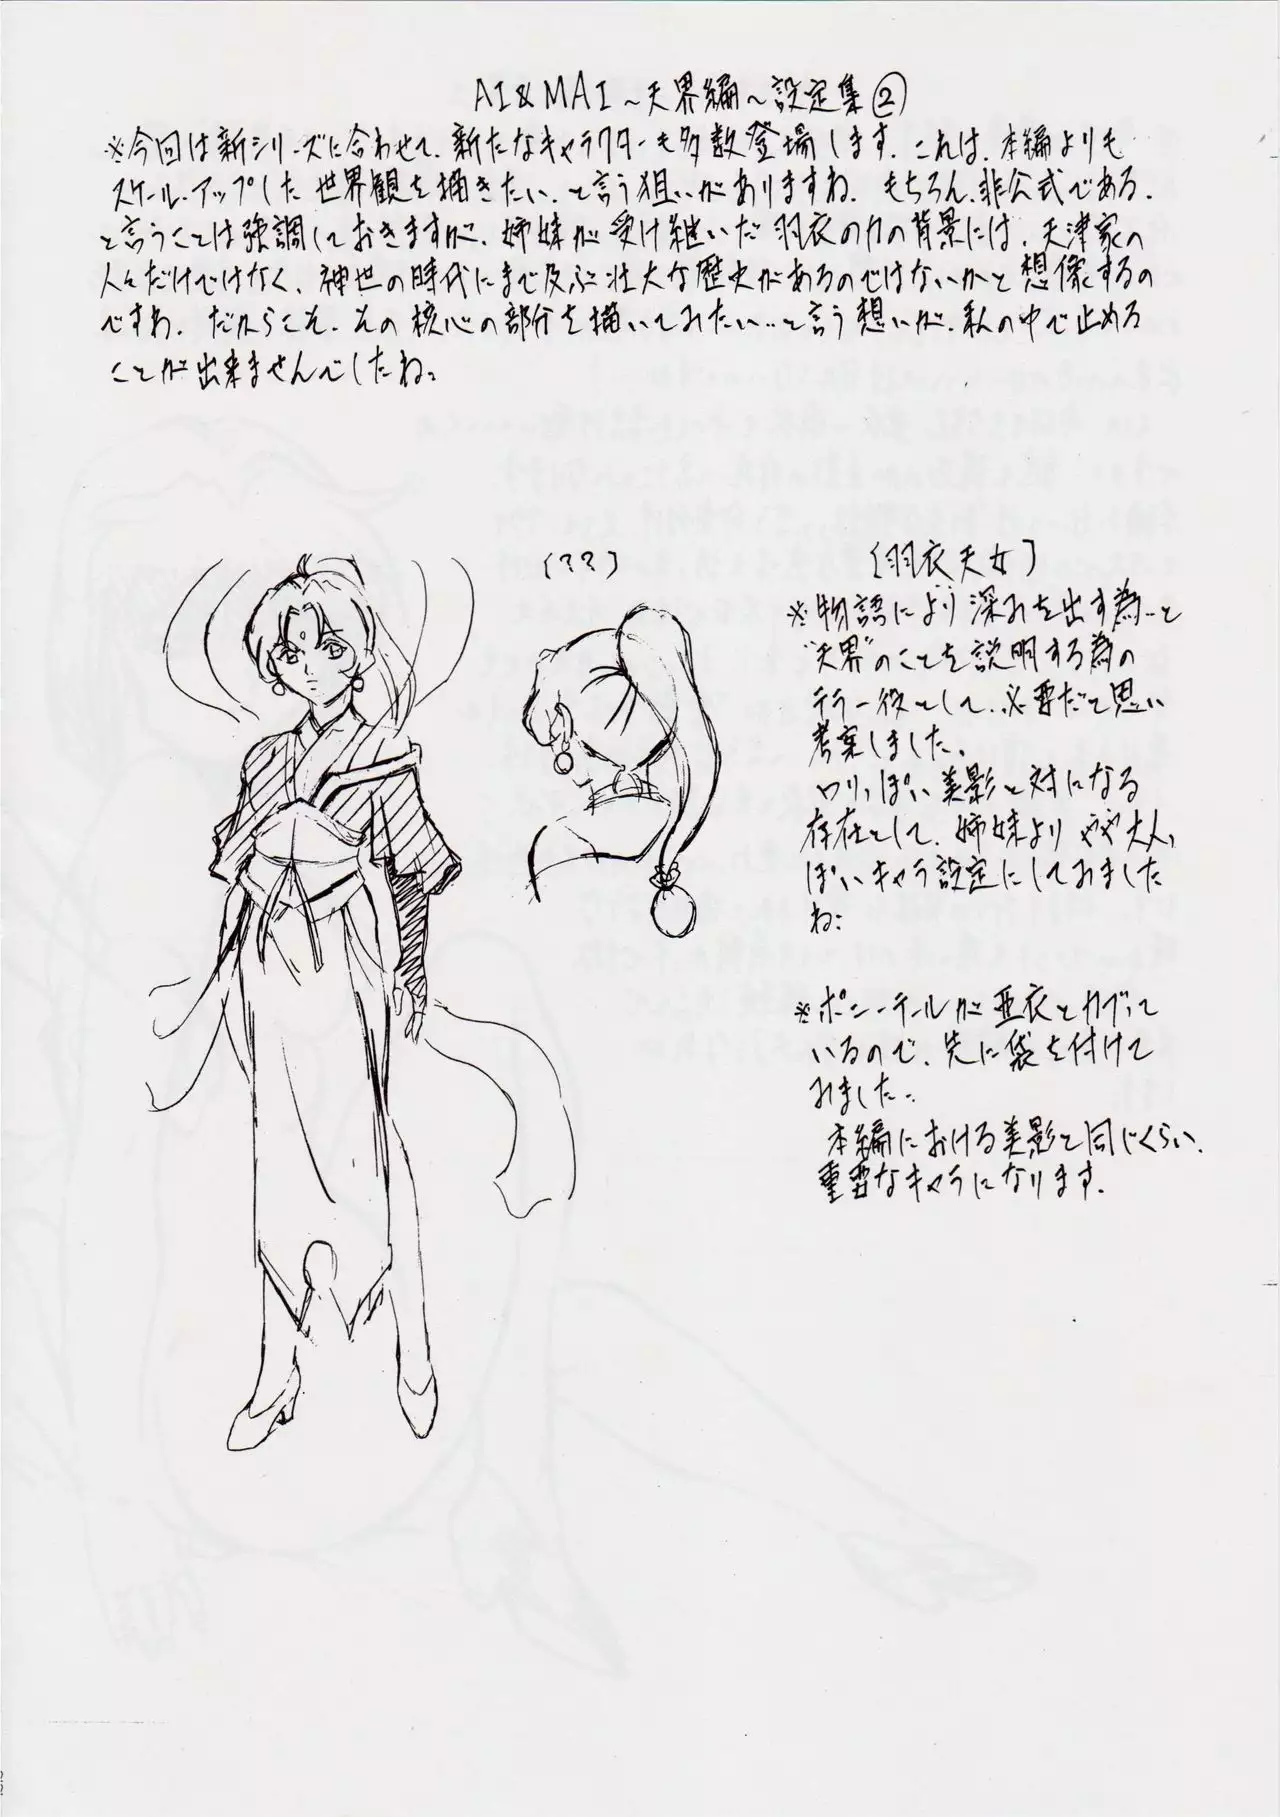 AI&MAI～天界編～設定集②
※今回は新シリーズに合わせて、新たなキャラクターも多数登場します。これは、本編よりも
スケール・アップした世界観を描きたい、と言う狙いがありますね。もちろん、非公式である、
と言うことは強調しておきますが、姉妹が受け継いだ羽衣の力の背景には、天津家の
人々だけではなく、神世の時代にまで及ぶ壮大な歴史があるのではないかと想像するの
ですわ。だからこそ、その核心の部分を描いてみたい…と言う想いが、私の中で止める
ことが出来ませんでしたね。
(??)
[羽衣天女]
※物語により深みを出す為…と
"天界"のことを説明する為の
テラー役として、必要だと思い
考案しました。
ロリっぽい美影と対になる
存在として、姉妹よりやや大人っ
ぽいキャラ設定にしてみました
ね。
※ポニーテールが亜衣とカブって
いるので、先に袋を付けて
みました。
本編における美影と同じくらい、
重要なキャラになります。
22